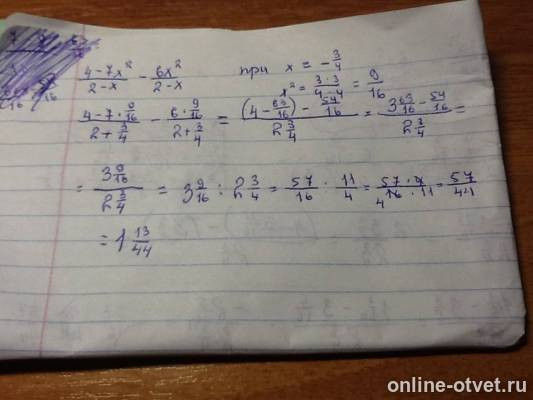 (4-7x²)/(2-x) - 6x²/(2-x) при x = -3/4
x² = (3·3)/(4·4) = 9/16
(4-7·9/16)/(2+3/4) - (6·9/16)/(2+3/4) = ((4-63/16)-54/16)/(2 3/4) = (3 63/16 - 54/16)/(2 3/4) =
= (3 9/16)/(2 3/4) = 3 9/16 : 2 3/4 = 57/16 : 11/4 = (57·4)/(16·11) = 57/44
4
= 1 13/44
online-otvet.ru